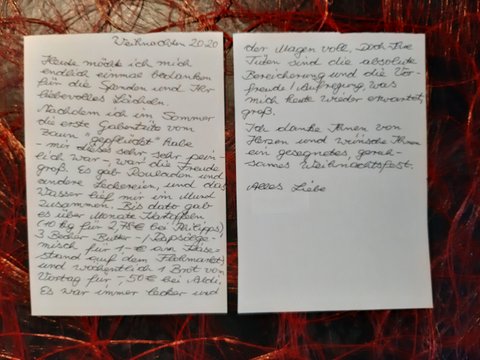 Weihnachten 2020
Heute möchte ich mich
endlich einmal bedanken
für die Spenden und Ihr
liebevolles Lächeln.
Nachdem ich im Sommer
die erste Gabentüte vom
Zaun "gepflückt" habe
- mir dieses sehr, sehr pein-
lich war -, war die Freude
groß. Es gab Rouladen und
andere Leckereien, und das
Wasser lief mir im Mund
zusammen. Bis dato gab
es über Monate Kartoffeln
(10 kg für 2,75€ bei Philipps)
3 Becher Butter-/Rapsölge-
misch für 1,-€ am Käse-
stand auf dem Flohmarkt
und wöchentlich 1 Brot vom
Vortag für -,50€ bei Aldi.
Es war immer lecker und
der Magen voll. Doch Ihre
Tüten sind die absolute
Bereicherung und die Vor-
freude/Aufregung, was
mich heute wieder erwartet,
groß.
Ich danke Ihnen von
Herzen und wünsche Ihnen
ein gesegnetes, gemein-
sames Weihnachtsfest.
Alles Liebe